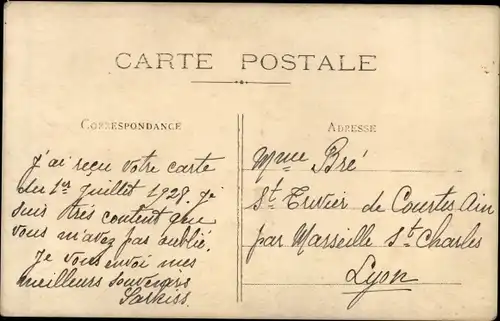 CARTE POSTALE
CORRESPONDANCE
J'ai reçu votre carte
du 1er Juillet 1928. je
suis très content que
vous m'avez pas oublié.
Je vous envoi mes
meilleurs souvenirs
Sarkiss.
ADRESSE
Mme Bré
St Trivier de Courtes Ain
par Marseille St Charles
Lyon